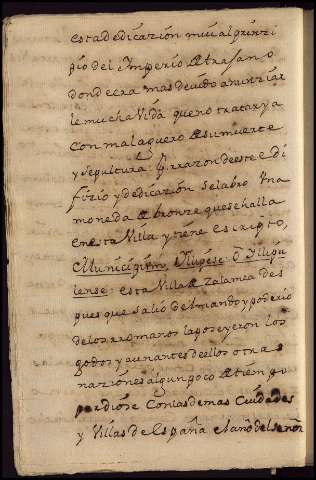 esta dedicazión mui al prinzi
pio del Imperio de trajano
donde era mas devido anunziar
le mucha vida que no tratar ya
con mal aguero de su muerte
y sepultura. Por razon de este edi
fizio y dedicazión se labro una
moneda de bronze que se halla
en esta Villa y tiene escripto,
Municipium, Ylipẽse: õ Ylipu
lense: esta Villa de Zalamea des
pues que salió del mando y poderio
de los rromanos la poseyeron los
godos y aun antes de ellos otras
naziónes algun poco de tiempo
perdióse con las demas Ciudades
y Villas de España el año del señor